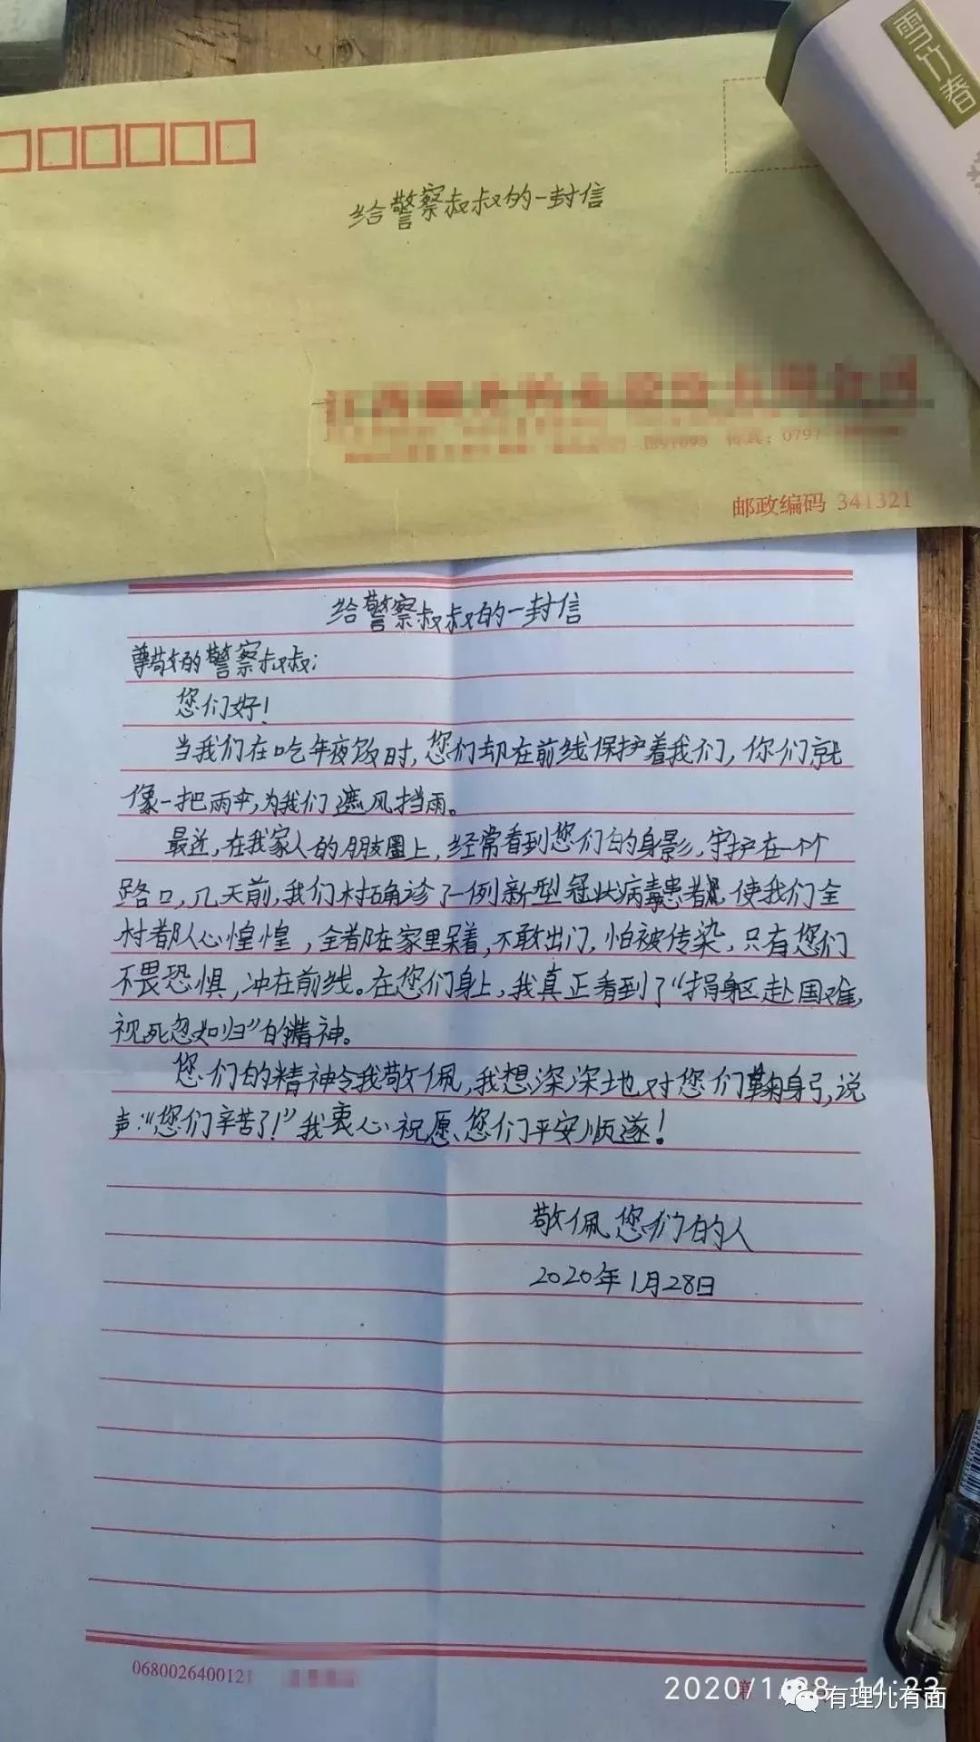 雪竹春
给警察叔叔的一封信
传真：0797
邮政编码 341321
给警察叔叔的一封信
尊敬的警察叔叔：
您们好！
当我们在吃年夜饭时，您们却在前线保护着我们，你们就
像一把雨伞，为我们遮风挡雨。
最近，在我家人的朋友圈上，经常看到您们的身影，守护在一个个
路口，几天前，我们村确诊了一例新型冠状病毒患者，使我们全
村都人心惶惶，全都在家里呆着，不敢出门，怕被传染，只有您们
不畏恐惧，冲在前线。在您们身上，我真正看到了“捐躯赴国难，
视死忽如归”的精神。
您们的精神令我敬佩，我想深深地对您们鞠身弓，说
声：“您们辛苦了！”我衷心祝愿、您们平安顺遂！
敬佩您们的人
2020年1月28日
068002640012
第
2020/1/28 14:23
有理儿有面